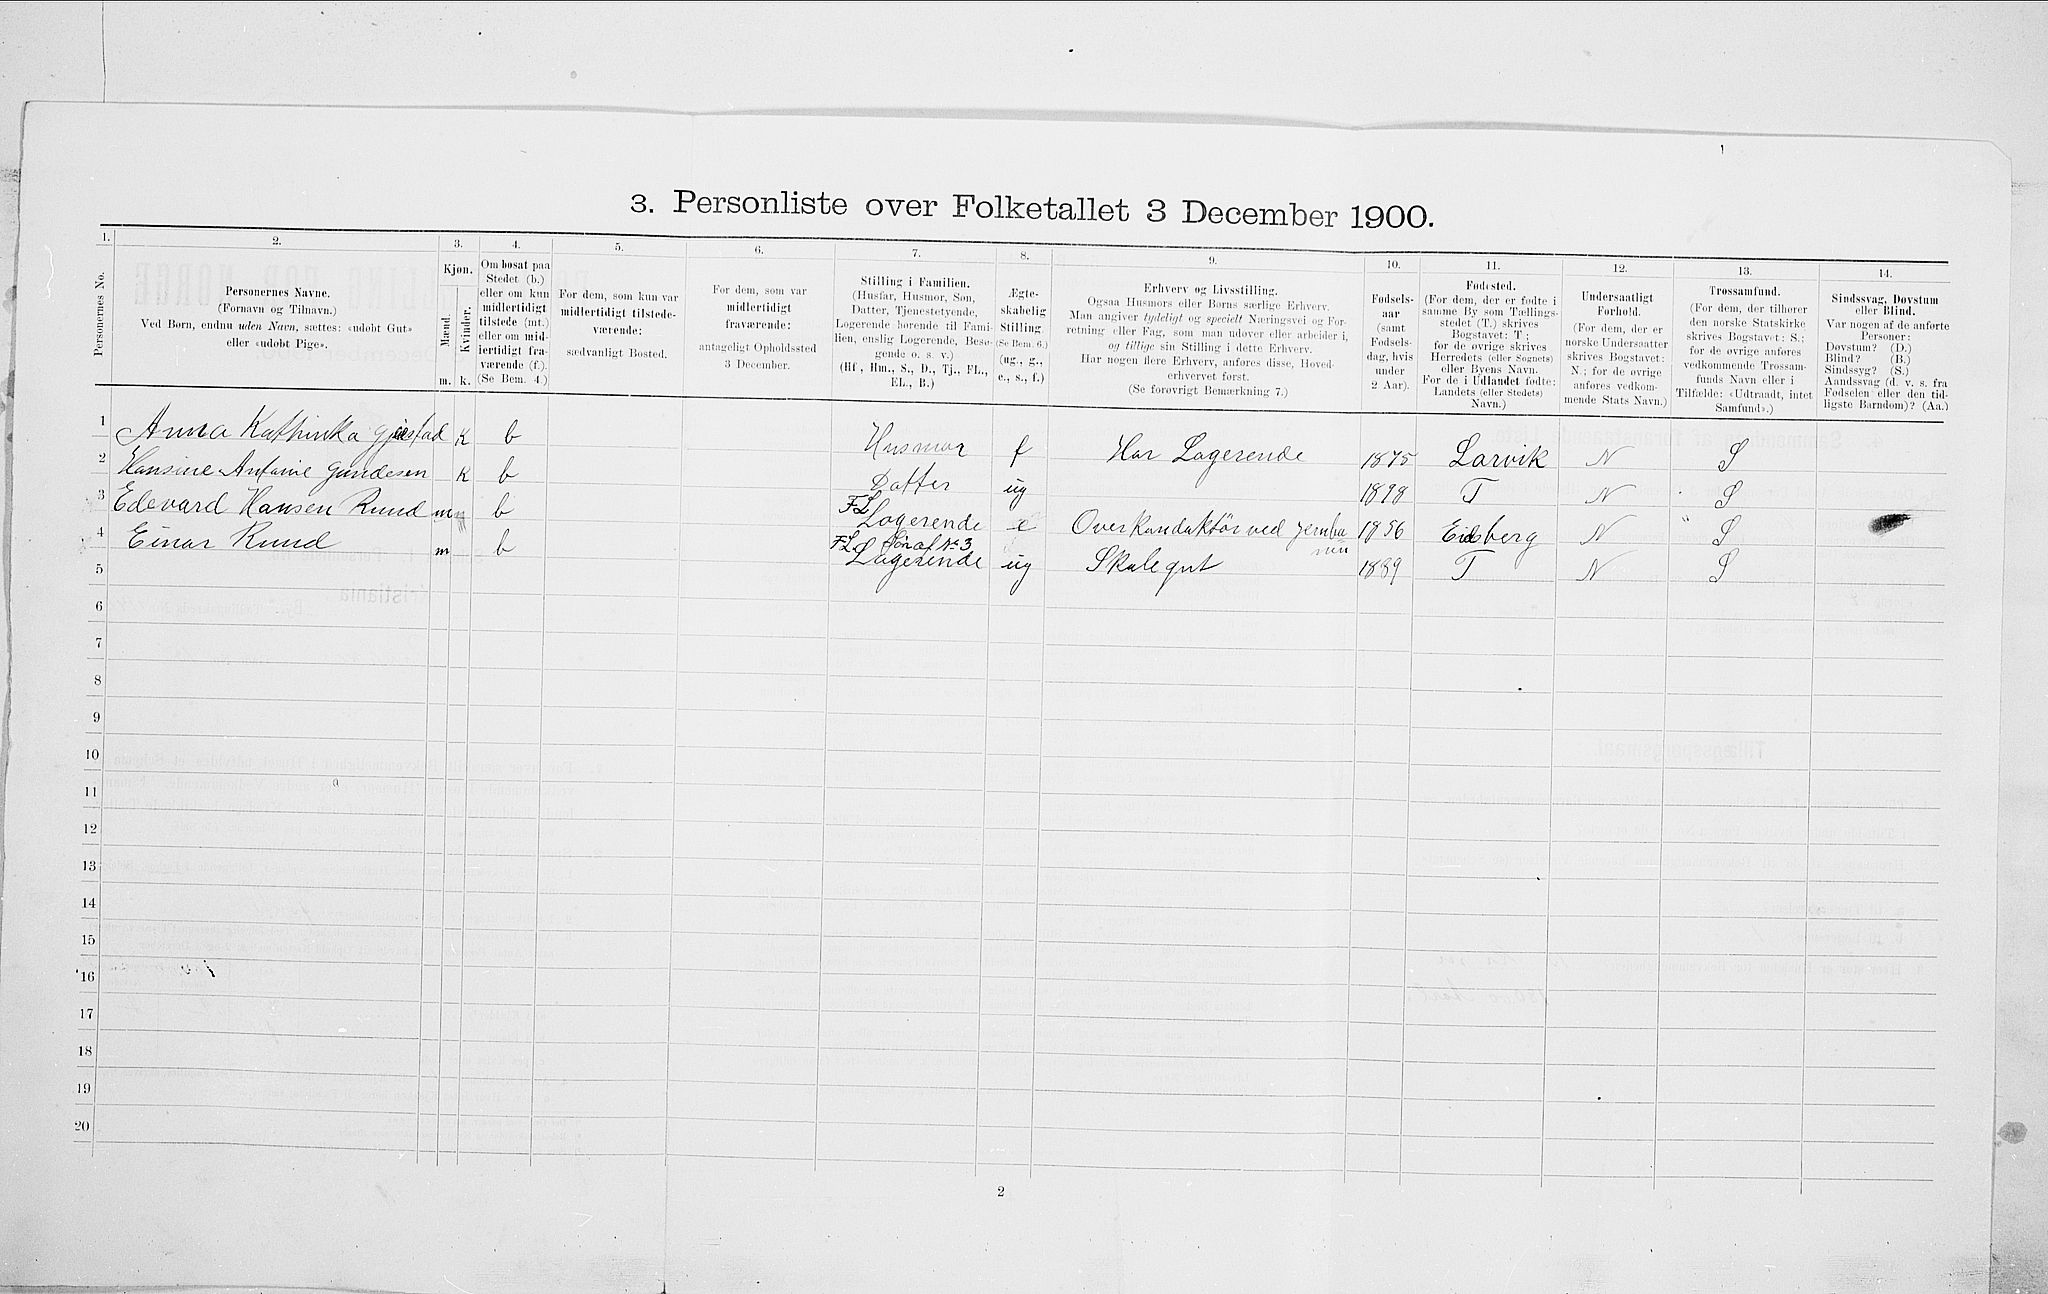 3. Personliste over Folketallet 3 December 1900.
1. 2. 3. 4. 5. 6. 7. 8. 9. 10. 11. 12. 13. 14.
Personernes No.
Personernes Navne.
(Fornavn og Tilnavn.)
Ved Børn, endnu uden Navn, sættes: «udøbt Gut»
eller «udøbt Pige».
Kjøn.
Mænd.
Kvinder.
m. k.
Om bosat paa
Stedet (b.)
eller om kun
midlertidigt
tilstede (mt.)
eller om mid-
lertidigt fra-
værende (f.).
(Se Bem. 4.)
For dem, som kun var
midlertidigt tilstede-
værende:
sædvanligt Bosted.
For dem, som var
midlertidigt
fraværende:
antageligt Opholdssted
3 December.
Stilling i Familien.
(Husfar, Husmor, Søn,
Datter, Tjenestetyende,
Logerende hørende til Fami-
lien, enslig Logerende, Besø-
gende o. s. v.)
(Hf., Hm., S., D., Tj., FL.,
EL., B.)
Ægte-
skabelig
Stilling.
(Se Bem. 6.)
(ug., g.,
e., s., f.)
Erhverv og Livsstilling.
Ogsaa Husmors eller Børns særlige Erhverv.
Man angiver tydeligt og specielt Næringsvei og For-
retning eller Fag, som man udøver eller arbeider i,
og tillige sin Stilling i dette Erhverv.
Har nogen flere Erhverv, anføres disse, Hoved-
erhvervet først.
(Se forøvrigt Bemærkning 7.)
Fødsels-
aar
(samt
Fødsels-
dag, hvis
under
2 Aar).
Fødested.
(For dem, der er fødte i
samme By som Tællings-
stedet (T.) skrives
Bogstavet: T;
for de øvrige skrives
Herredets (eller Sognets)
eller Byens Navn.
For de i Udlandet fødte:
Landets (eller Stedets)
Navn.)
Undersaatligt
Forhold.
(For dem, der er
norske Undersaatter
skrives Bogstavet:
N.; for de øvrige
anføres vedkom-
mende Stats Navn.)
Trossamfund.
(For dem, der tilhører
den norske Statskirke
skrives Bogstavet: S.;
for de øvrige anføres
vedkommende Trossam-
funds Navn eller i
Tilfælde: «Udtraadt, intet
Samfund».)
Sindssvag, Døvstum
eller Blind.
Var nogen af de anførte
Personer:
Døvstum? (D.)
Blind? (B.)
Sindssyg? (S.)
Aandssvag (d. v. s. fra
Fødselen eller den tid-
ligste Barndom)? (Aa.)
1 Anna Kathinka Gjestad k b Husmor f Har Logerende 1875 Larvik N S
2 Hansine Antonie Gundesen k b Datter ug 1898 T N S
3 Edevard Hansen Rund m b FL Logerende e Overkonduktør ved Jernba 1856 Eidsberg N S
nen
4 Einar Rund m b FL Søn af No 3
Logerende ug Skolegut 1889 T N S
5
6
7
8
9
10
11
12
13
14
15
16
17
18
19
20
2